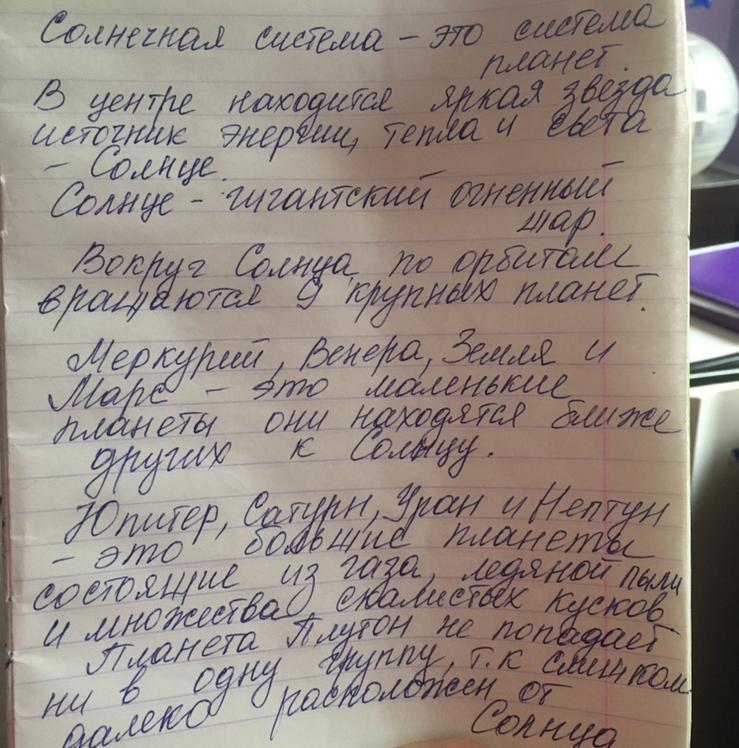 Солнечная система – это система
планет.
В центре находится яркая звезда
источник энергии, тепла и света
– Солнце.
Солнце – гигантский огненный
шар.
Вокруг Солнца по орбитам
вращаются 9 крупных планет.
Меркурий, Венера, Земля и
Марс – это маленькие
планеты они находятся ближе
других к Солнцу.
Юпитер, Сатурн, Уран и Нептун
– это большие планеты
состоящие из газа, ледяной пыли
и множества скалистых кусков
Планета Плутон не попадает
ни в одну группу, т.к слишком
далеко расположен от
Солнца